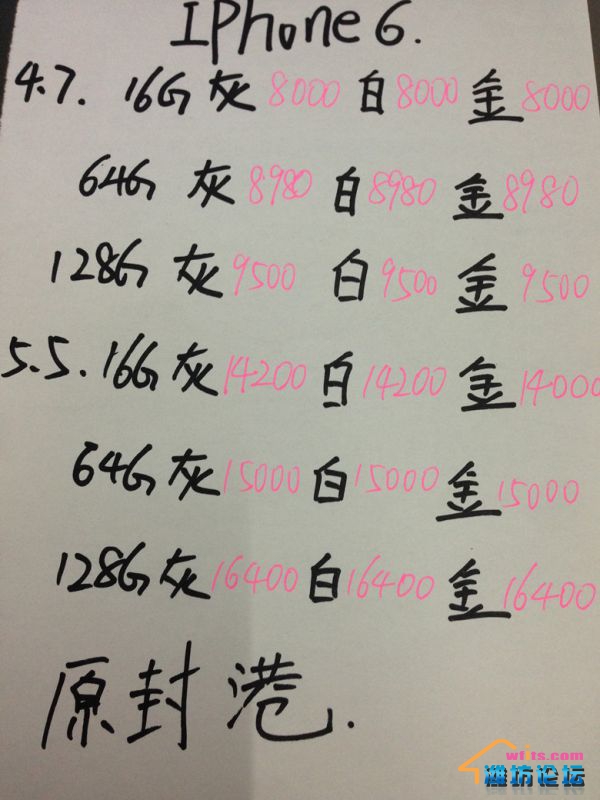 IPhone 6.
4.7. 16G 灰 8000 白 8000 金 8000
64G 灰 8980 白 8980 金 8980
128G 灰 9500 白 9500 金 9500
5.5. 16G 灰 14200 白 14200 金 14000
64G 灰 15000 白 15000 金 15000
128G 灰 16400 白 16400 金 16400
原封港.
wfits.com
潍坊论坛